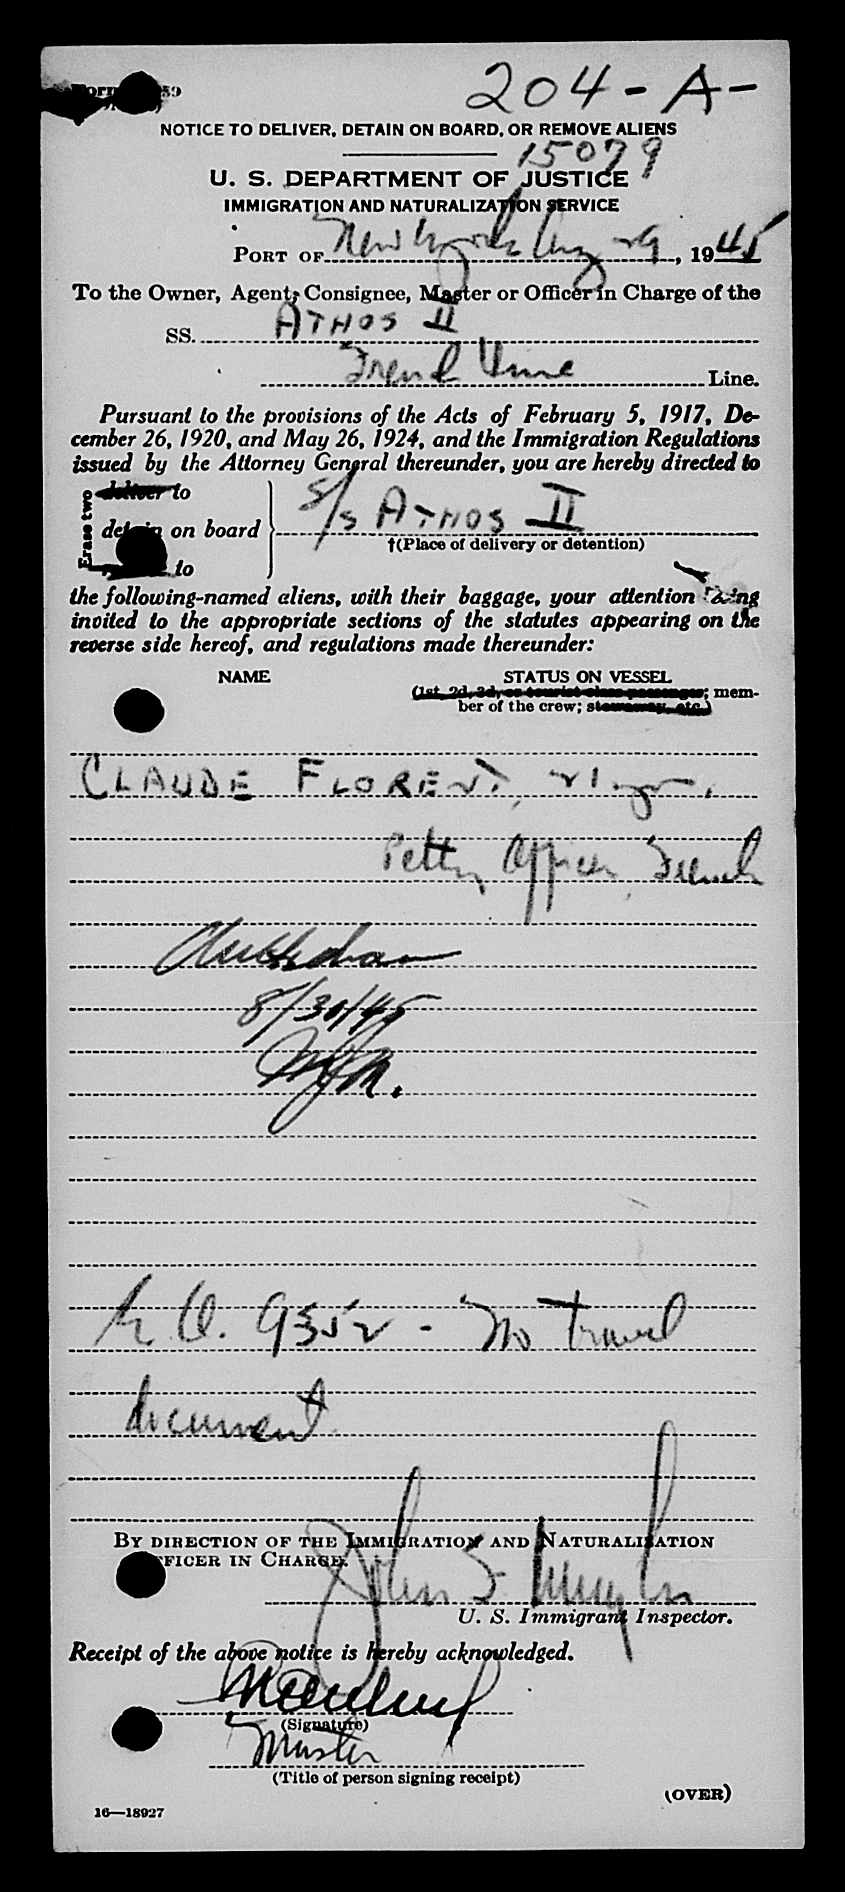 204-A-
NOTICE TO DELIVER, DETAIN ON BOARD, OR REMOVE ALIENS
15079
U. S. DEPARTMENT OF JUSTICE
IMMIGRATION AND NATURALIZATION SERVICE
PORT OF New York Aug 29, 1945
To the Owner, Agent, Consignee, Master or Officer in Charge of the
SS. ATHOS II
French Line Line.
Pursuant to the provisions of the Acts of February 5, 1917, De-
cember 26, 1920, and May 26, 1924, and the Immigration Regulations
issued by the Attorney General thereunder, you are hereby directed to
Erase two
deliver to
detain on board S/S ATHOS II
to
†(Place of delivery or detention)
the following-named aliens, with their baggage, your attention being
invited to the appropriate sections of the statutes appearing on the
reverse side hereof, and regulations made thereunder:
NAME STATUS ON VESSEL
(1st, 2d, 3d, or tourist class passenger; mem-
ber of the crew; stowaway, etc.)
CLAUDE FLORENT, 21 yrs.
Petty Officer, French
8/30/45
E.O. 9352 - No travel
document
BY DIRECTION OF THE IMMIGRATION AND NATURALIZATION
OFFICER IN CHARGE.
John F.
U. S. Immigrant Inspector.
Receipt of the above notice is hereby acknowledged.
(Signature)
Master
(Title of person signing receipt)
(OVER)
16—18927